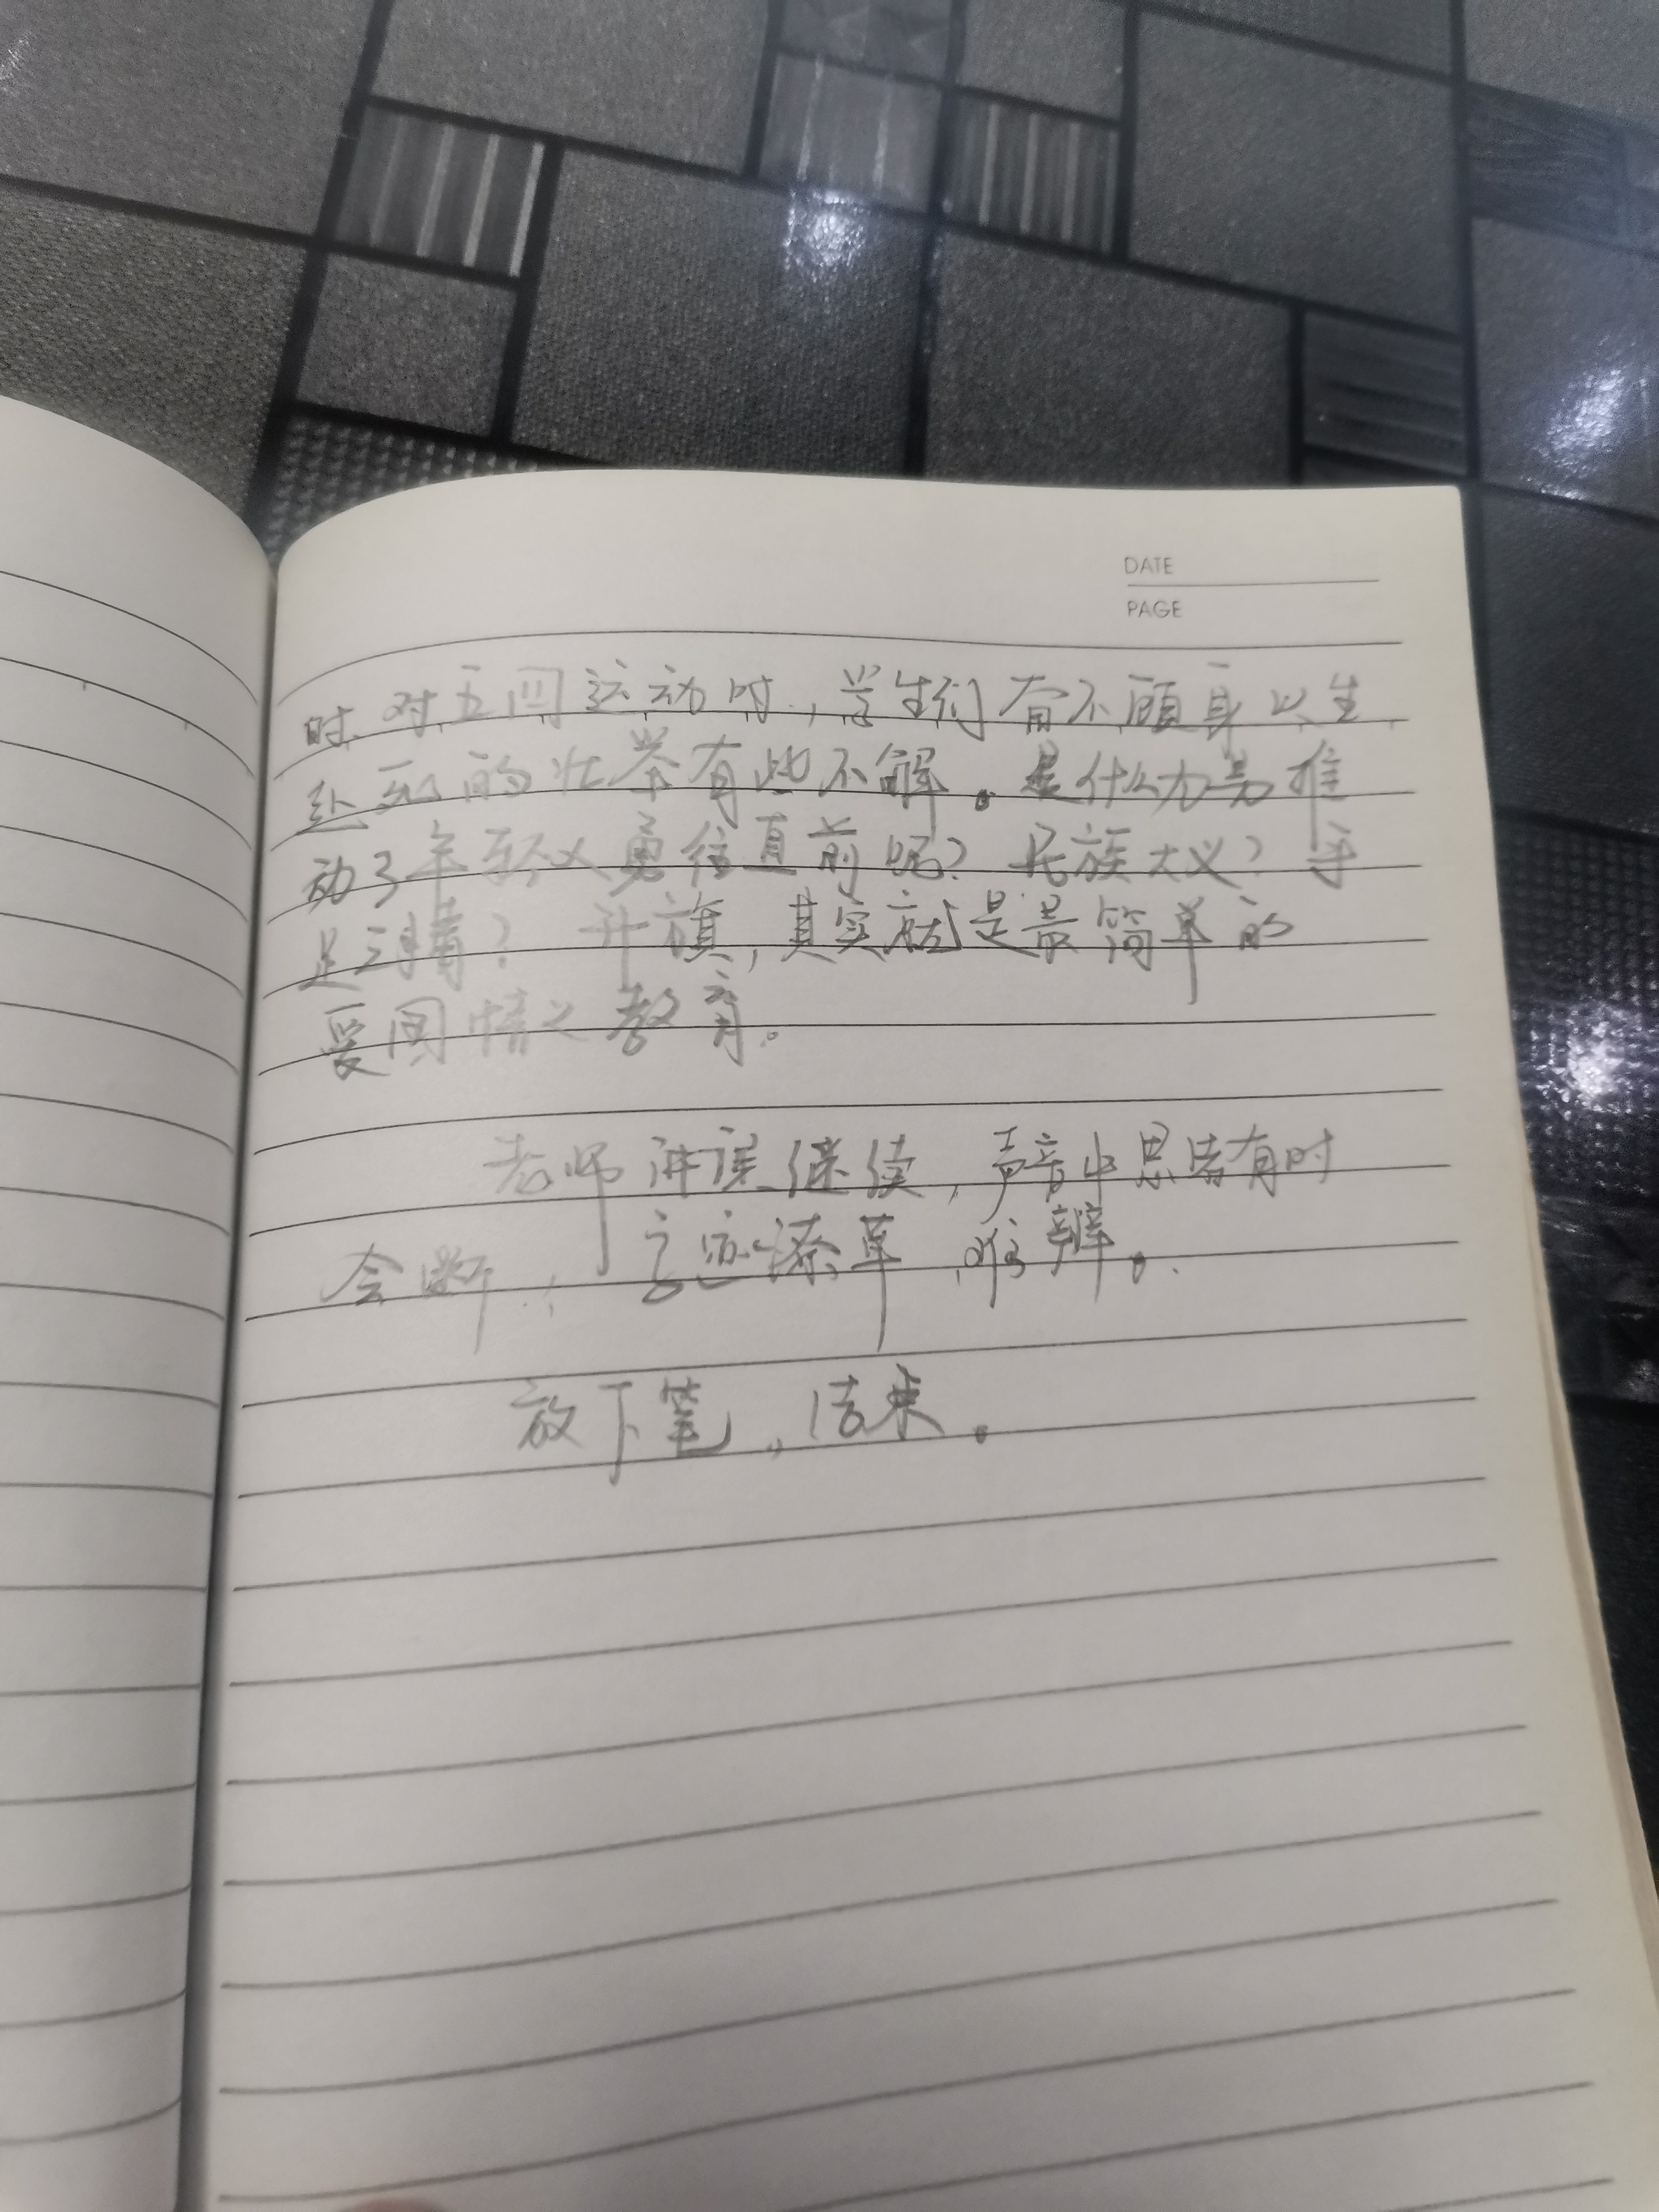 DATE
PAGE
时 对五四运动时，学生们奋不顾身以生
赴死的壮举有些不解。是什么力量推
动了年轻人勇往直前呢？民族大义？手
足之情？升旗，其实就是最简单的
爱国情义教育。
老师讲课继续，声音中思绪有时
会断，字迹潦草，难辨。
放下笔，结束。